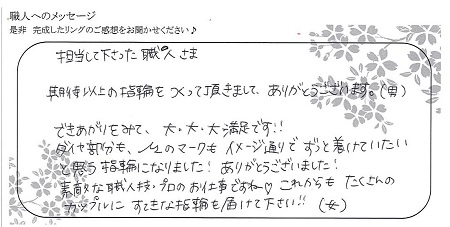 職人へのメッセージ
是非 完成したリングのご感想をお聞かせください♪
担当して下さった職人さま
期待以上の指輪をつくって頂きまして、ありがとうございます。(男)
できあがりをみて、大・大・大満足です!!
ダイヤ部分も、1/2のマークもイメージ通りでずっと着けていたい
と思う指輪になりました!ありがとうございました!
素敵な職人技・プロのお仕事ですね♡これからもたくさんの
カップルにすてきな指輪を届けて下さい!!(女)